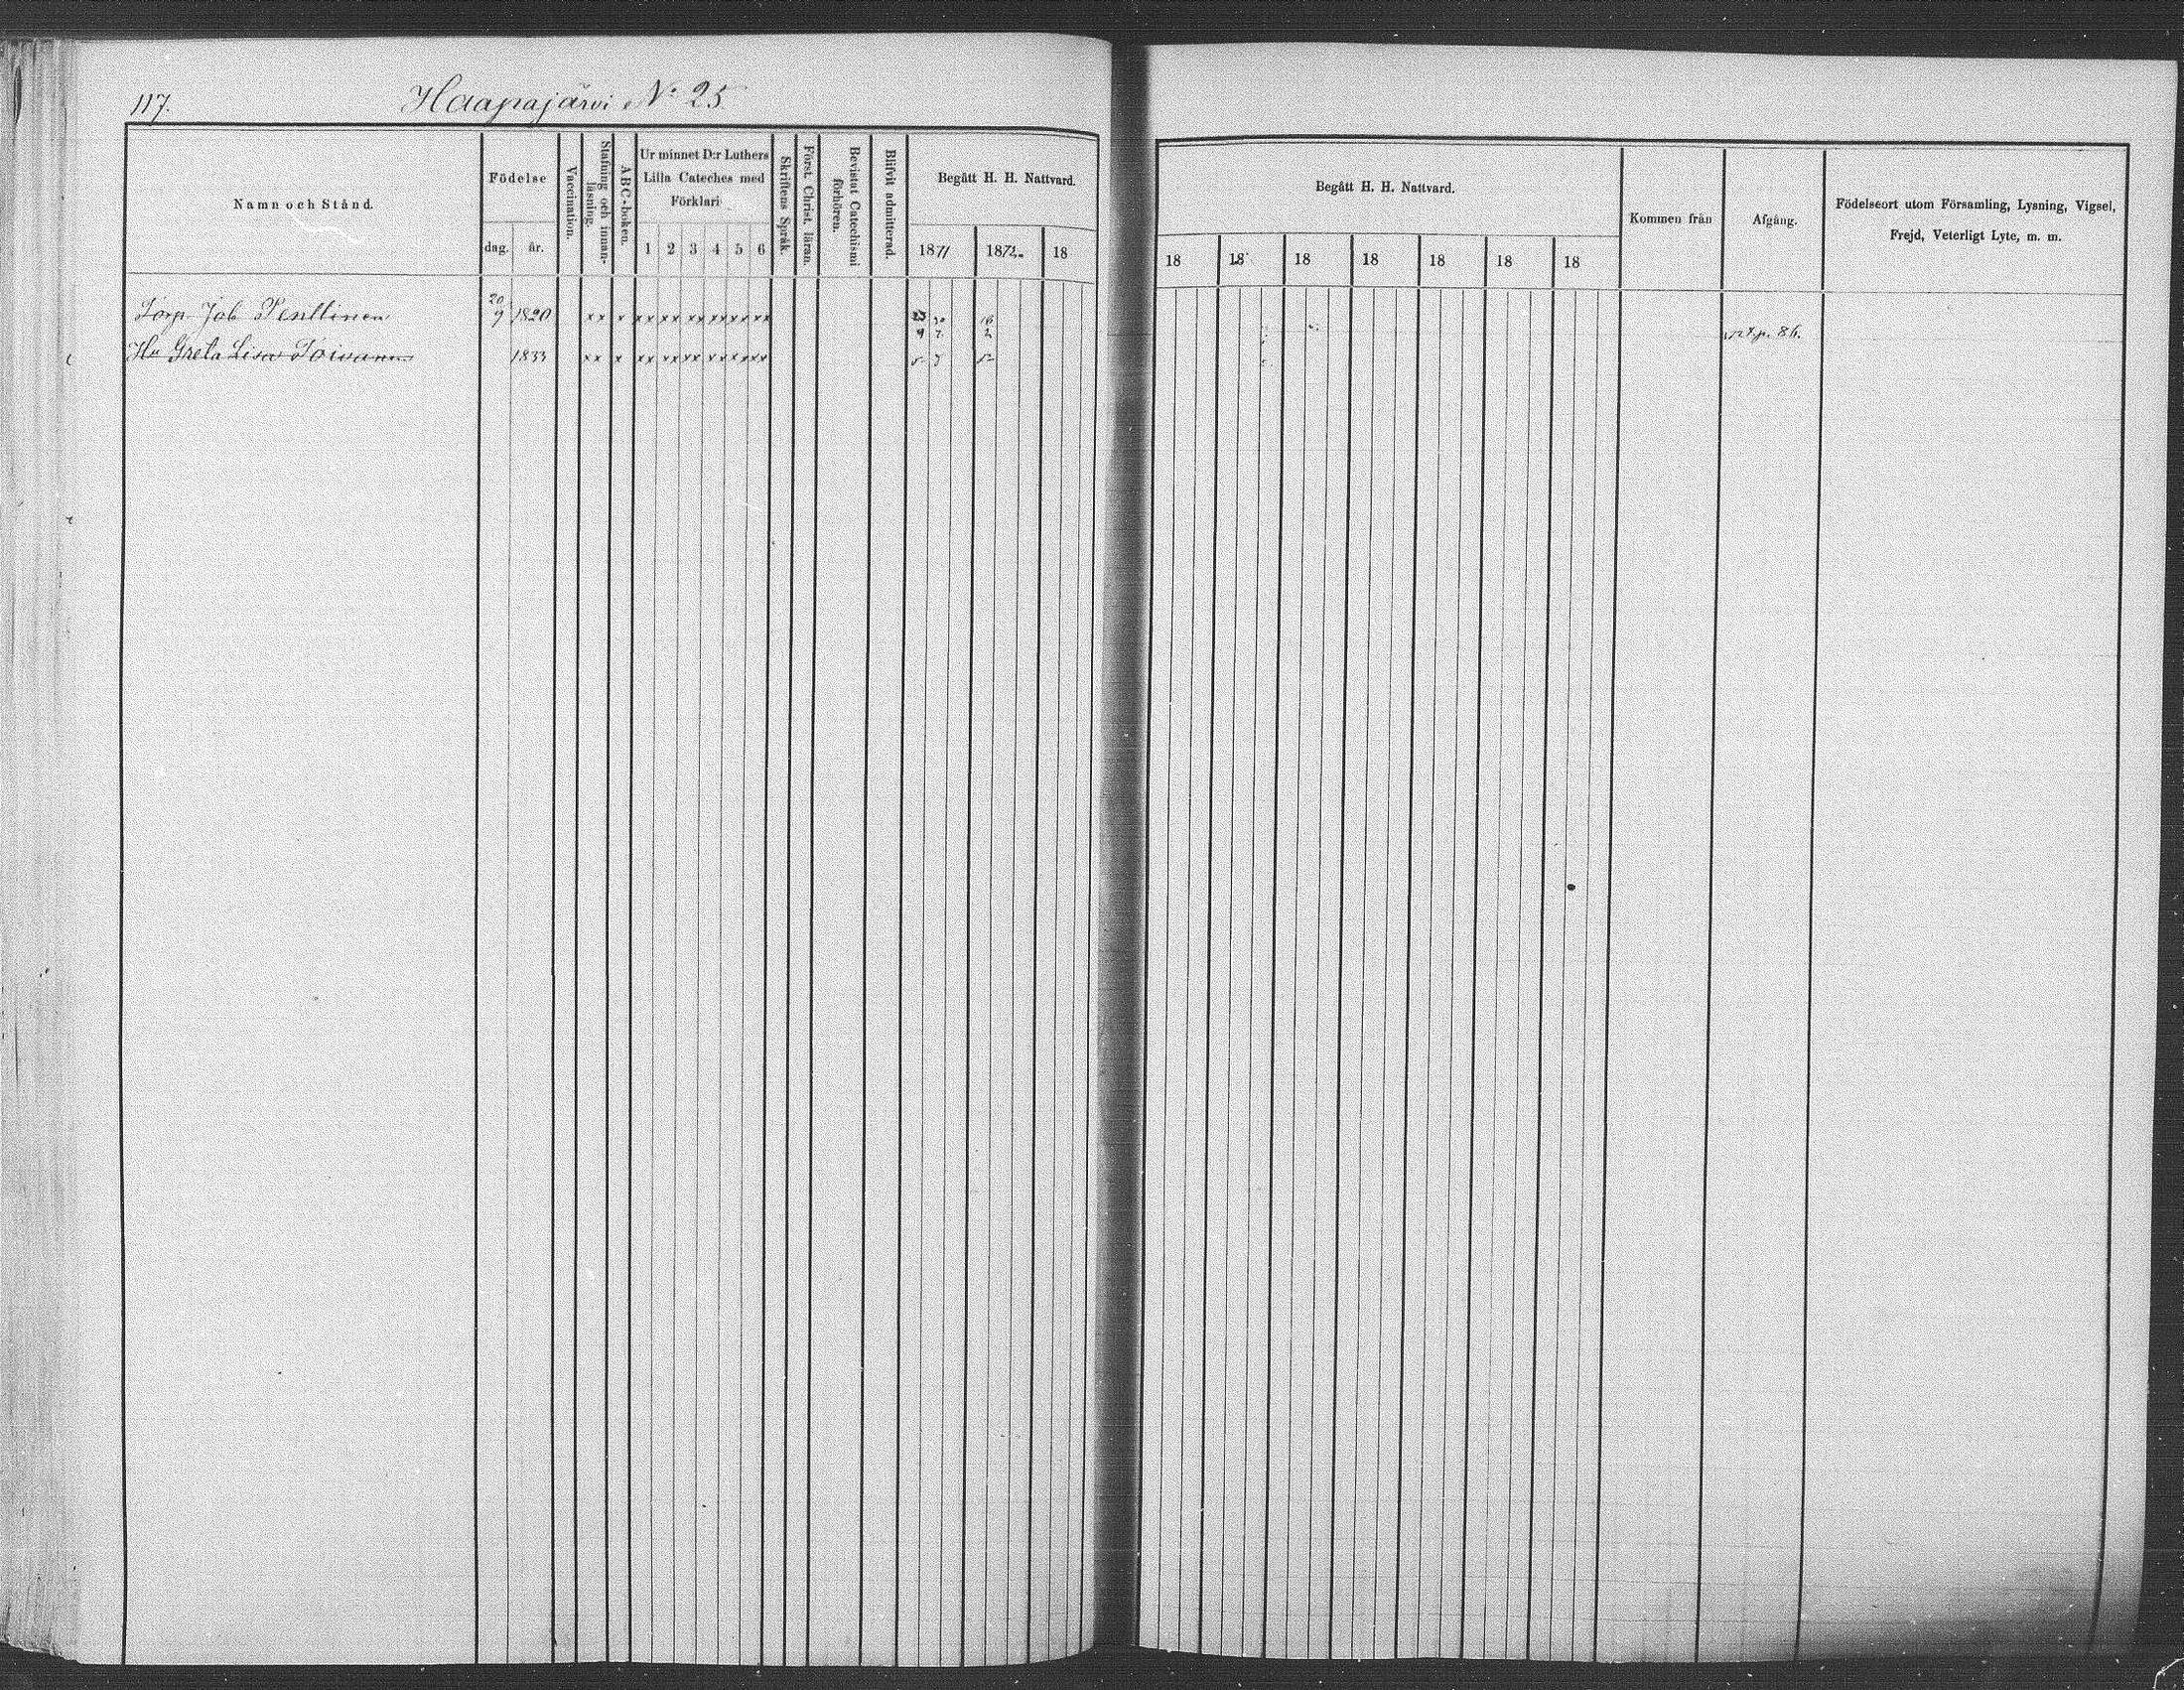 117. Haapajärvi No 25
Namn och Stånd.
Födelse
dag. år.
Vaccination.
Stafning och innan-
läsning.
ABC-boken.
Ur minnet D:r Luthers
Lilla Cateches med
Förklari
1 2 3 4 5 6
Skriftens Språk.
Först. Christ. läran.
Bevistat Catechismi
förhören.
Blifvit admitterad.
Begått H. H. Nattvard.
1871 1872 18
Begått H. H. Nattvard.
18 18 18 18 18 18 18
Kommen från
Afgång.
Födelseort utom Församling, Lysning, Vigsel,
Frejd, Veterligt Lyte, m. m.
Torp. Job Penttinen 20/9 1820 xx x xx xx xx xx xx xx
p. 86.
Hu Greta Lisa Toivanen 1833 xx x xx xx xx xx xx xx